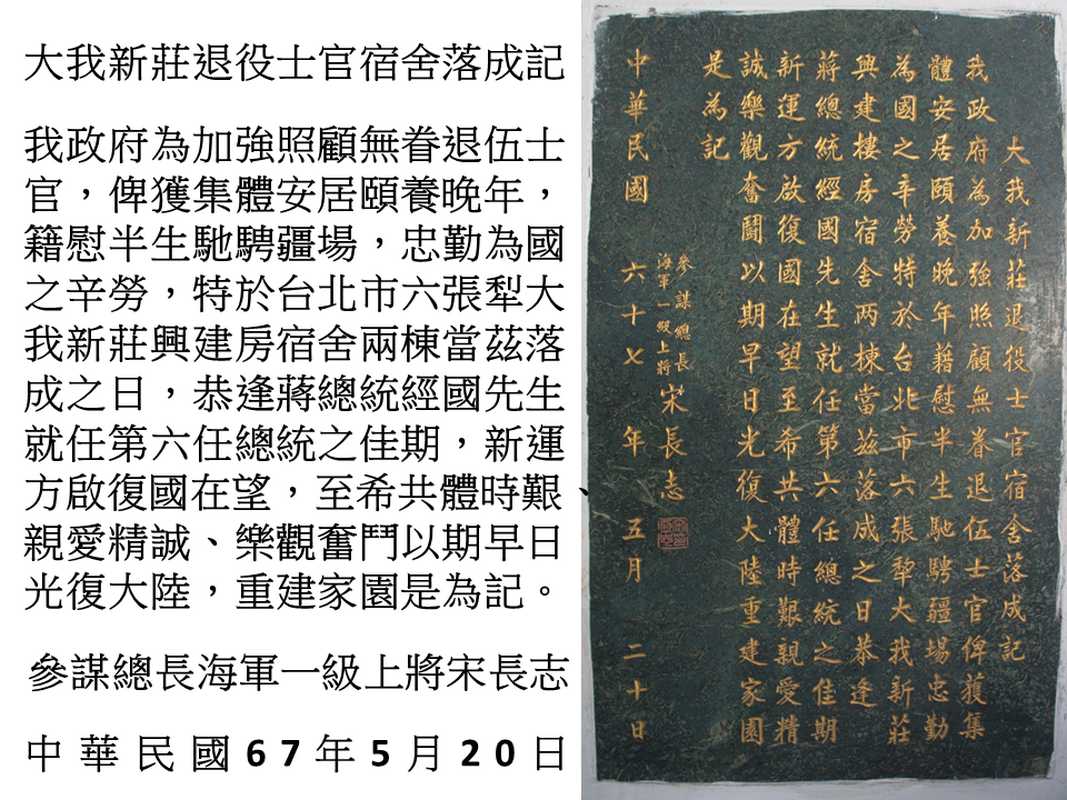 大我新莊退役士官宿舍落成記
我政府為加強照顧無眷退伍士
官，俾獲集體安居頤養晚年，
籍慰半生馳騁疆場，忠勤為國
之辛勞，特於台北市六張犁大
我新莊興建房宿舍兩棟當茲落
成之日，恭逢蔣總統經國先生
就任第六任總統之佳期，新運
方啟復國在望，至希共體時艱、
親愛精誠、樂觀奮鬥以期早日
光復大陸，重建家園是為記。
參謀總長海軍一級上將宋長志
中華民國67年5月20日
大我新莊退役士官宿舍落成記
我政府為加強照顧無眷退伍士官俾獲集
體安居頤養晚年藉慰半生馳騁疆場忠勤
為國之辛勞特於台北市六張犁大我新莊
興建樓房宿舍两棟當茲落成之日恭逢
蔣總統經國先生就任第六任總統之佳期
新運方啟復國在望至希共體時艱親愛精
誠樂觀奮鬪以期早日光復大陸重建家園
是為記
參謀總長
海軍一級上將
宋長志
中華民國六十七年五月二十日